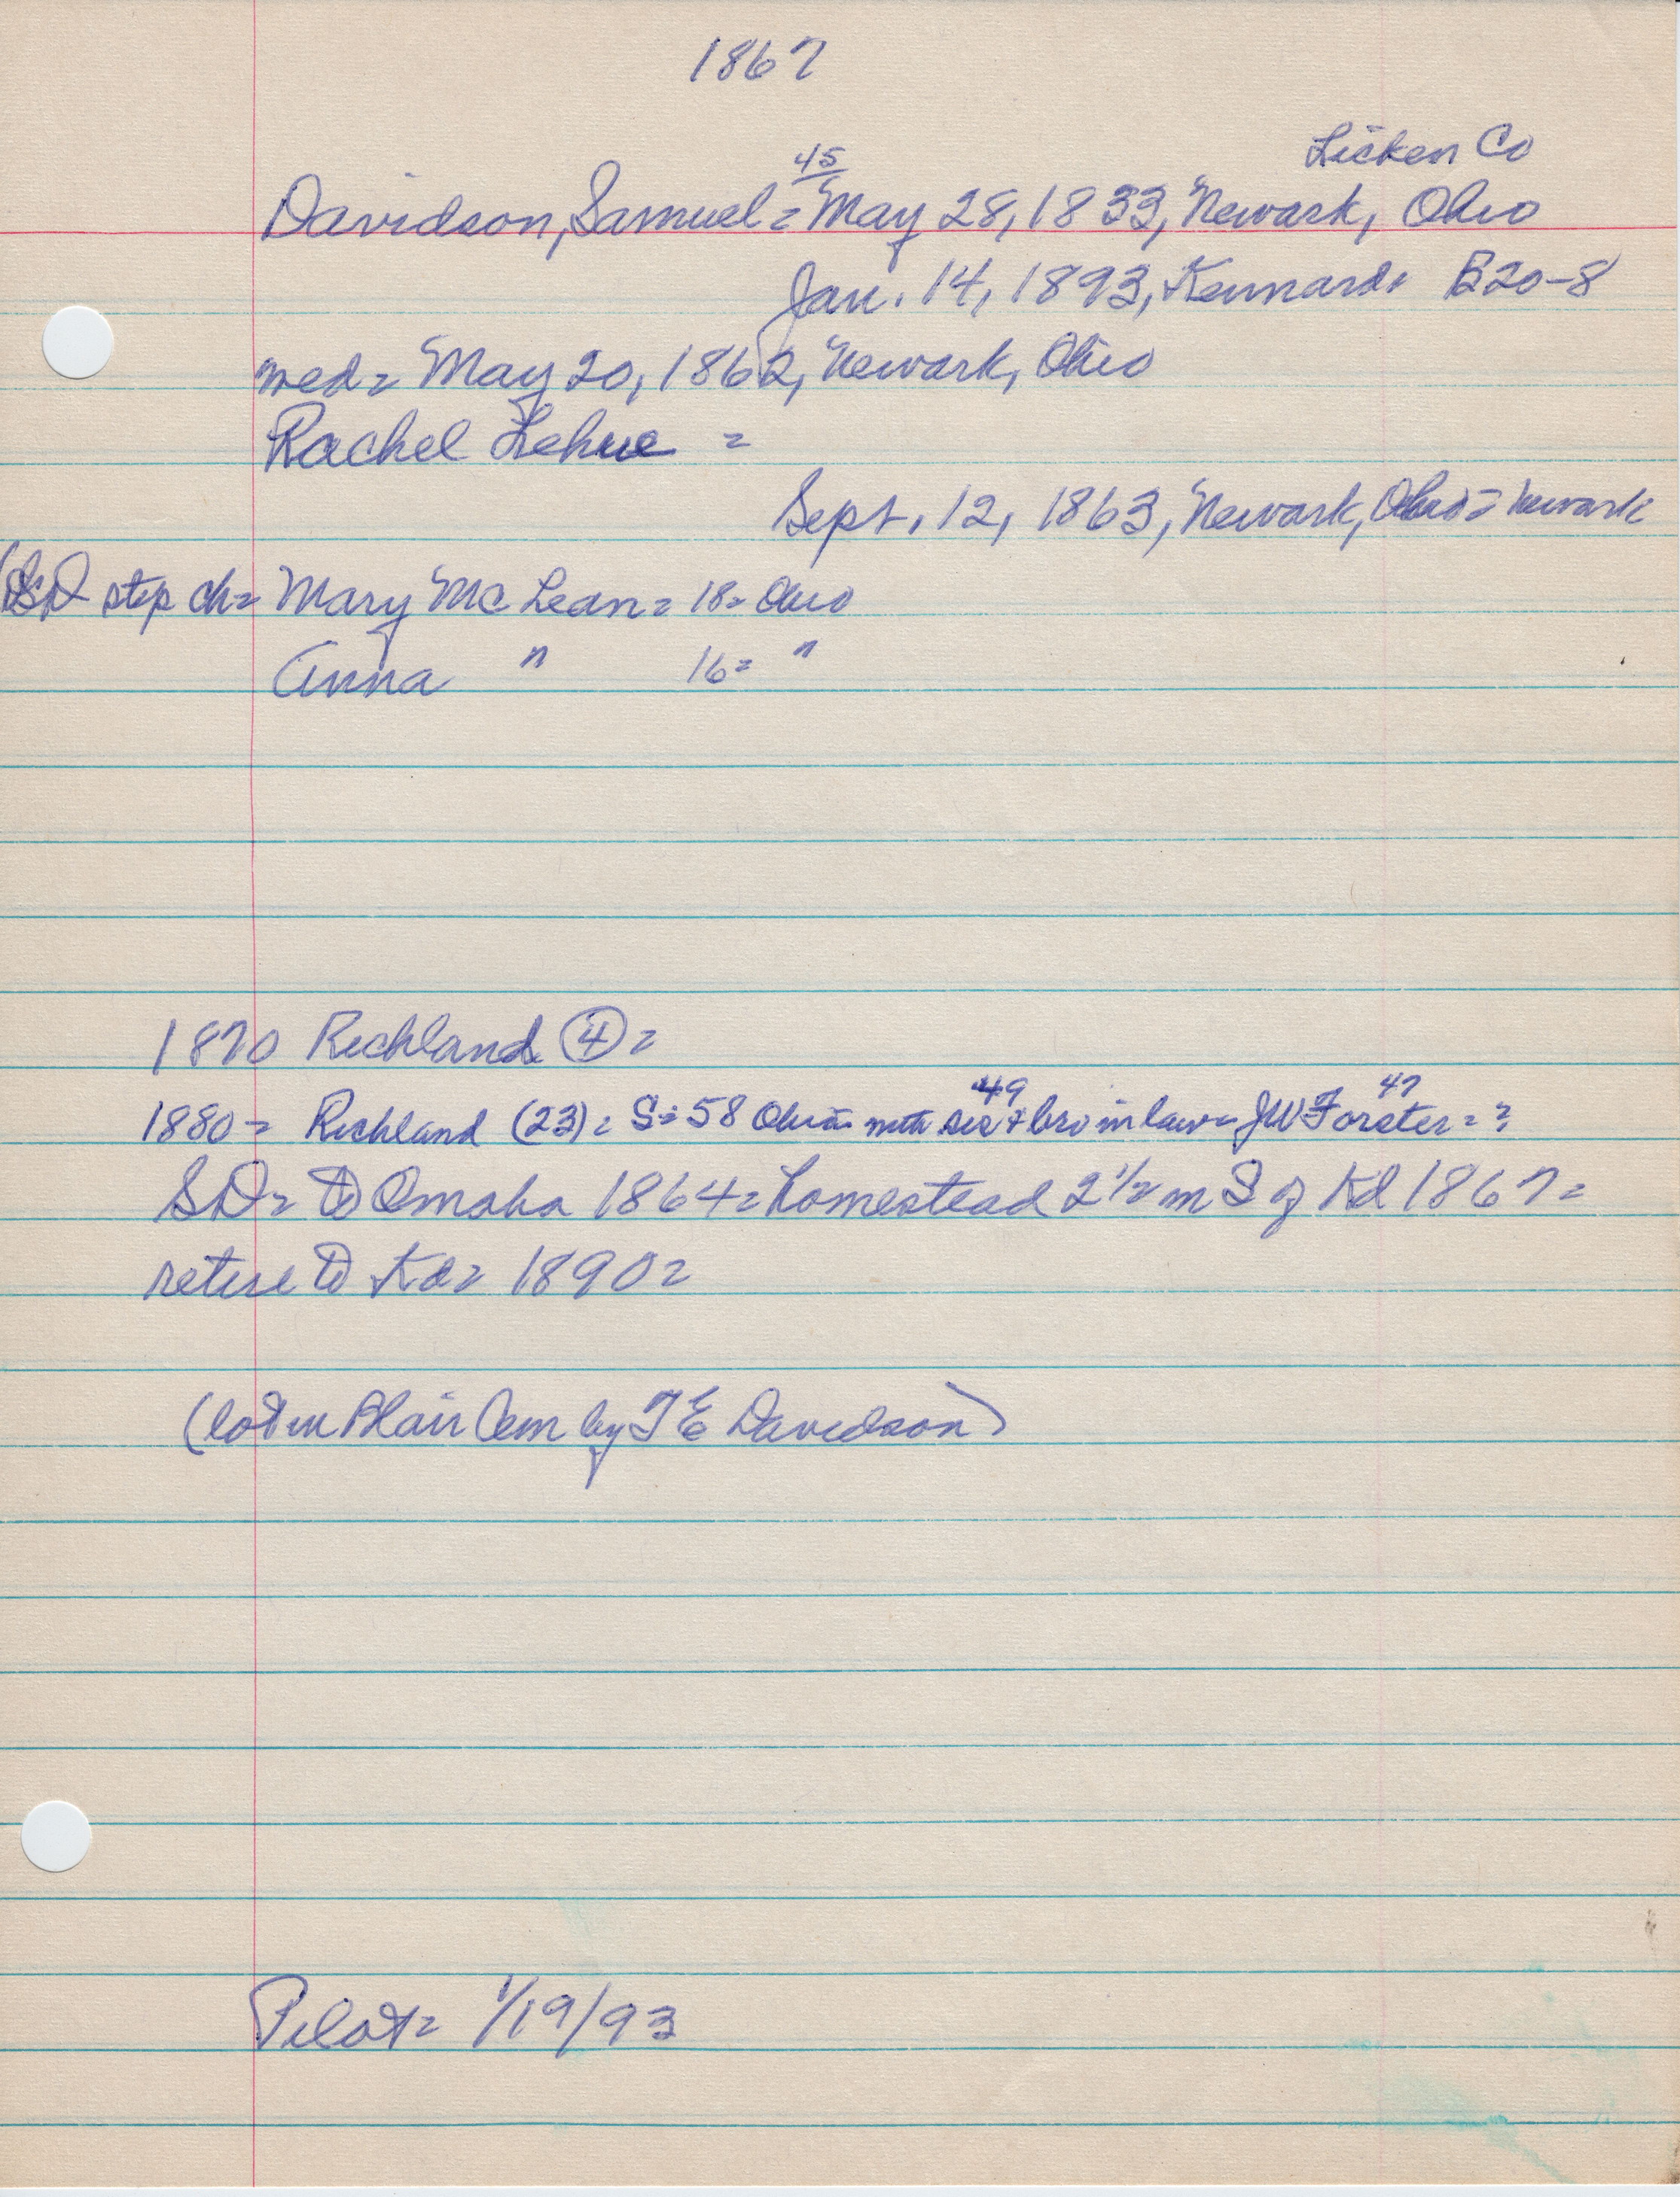 1867
Licken Co
45
Davidson, Samuel = May 28, 1833, Newark, Ohio
Jan. 14, 1893, Kennard. B20-8
med = May 20, 1862, Newark, Ohio
Rachel Lehue =
Sept. 12, 1863, Newark, Ohio = Newark
SD step ch = Mary McLean = 18 = Ohio
Anna " 16 = "
1870 Richland ④ =
49 47
1880 = Richland (23) = S = 58 Ohio = with sis + bro in law = JW Forster = ?
SD = to Omaha 1864 = homestead 2 1/2 m S of Kd 1867 =
retire to Kd = 1890 =
(lot in Blair Cem by T E Davidson)
Pilot = 1/19/93